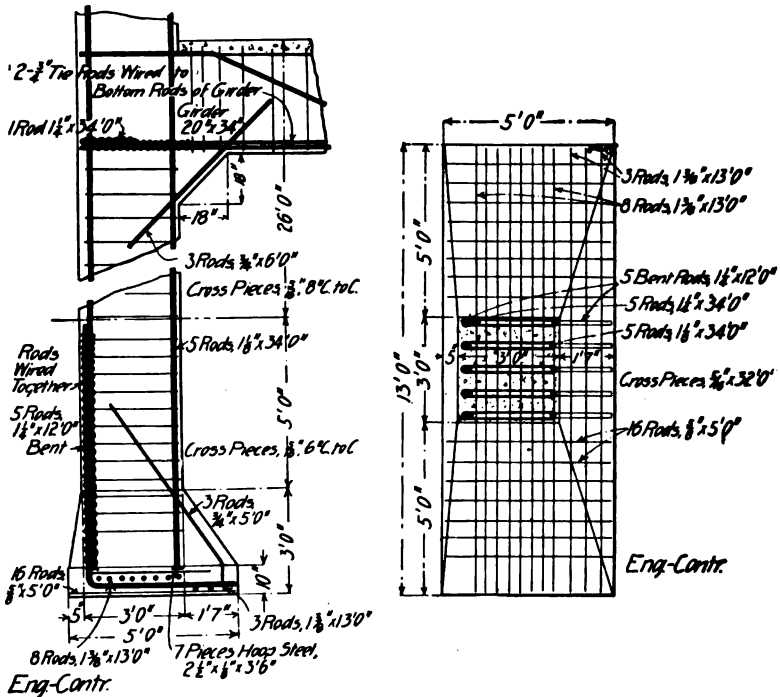 2-¾" Tie Rods Wired to
Bottom Rods of Girder
Girder
20"x34"
1 Rod 1¼"x34'0"
18"
18"
26'0"
3 Rods ¾"x6'0"
Cross Pieces, 8"C.toC.
Rods
Wired
Together
5 Rods,
1¼"x12'0"
Bent
5 Rods, 1⅛"x34'0"
5'0"
Cross Pieces, 6"C.toC
3 Rods,
¾"x5'0"
3'0"
10"
16 Rods,
⅜"x5'0"
5"
3'0"
1'7"
5'0"
3 Rods, 1⅜"x13'0"
8 Rods, 1⅜"x13'0"
7 Pieces Hoop Steel,
2½"x⅛"x3'6"
Eng-Contr.
5'0"
3 Rods, 1⅜"x13'0"
8 Rods, 1⅜"x13'0"
5'0"
13'0"
5 Bent Rods, 1¼"x12'0"
5 Rods, 1¼"x34'0"
5 Rods, 1⅛"x34'0"
5"
3'0"
1'7"
3'0"
Cross Pieces, x32'0"
16 Rods, ⅜"x5'0"
5'0"
Eng-Contr.